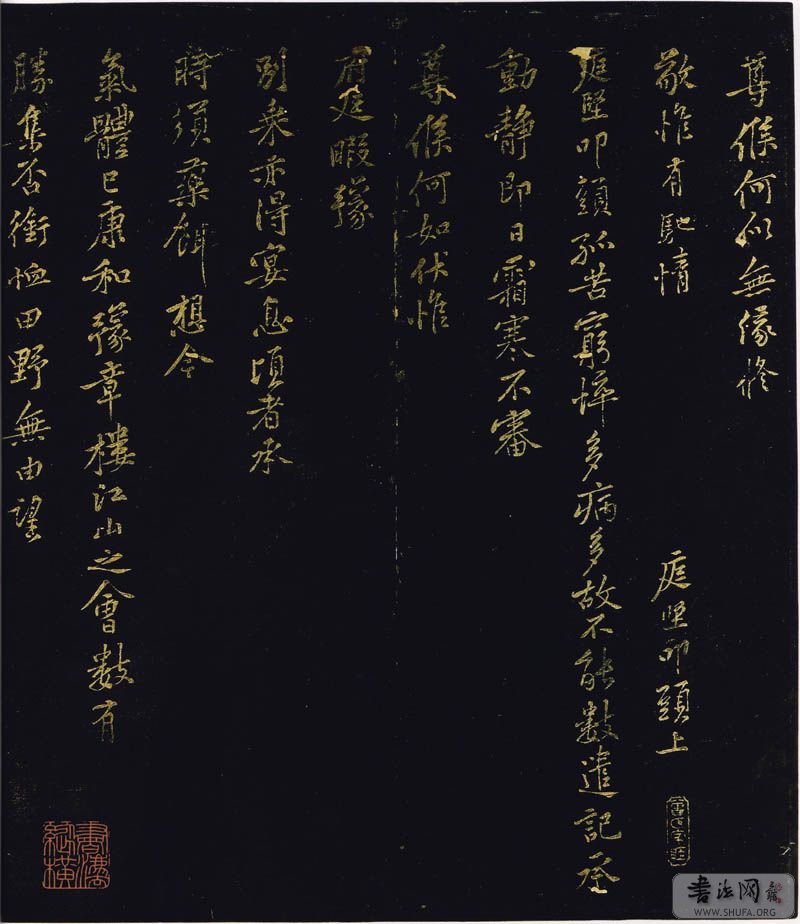 尊候何似無緣修
敬惟有馳情
庭堅叩頭上
庭堅叩頭孤苦窮悴多病多故不能數遣記承
動靜即日霜寒不審
尊候何如伏惟
府庭暇豫
別乘亦得宴息頃者承
時須藥餌想今
氣體已康和豫章樓江山之會數有
勝集否銜恤田野無由望
書法網
WWW.SHUFA.ORG